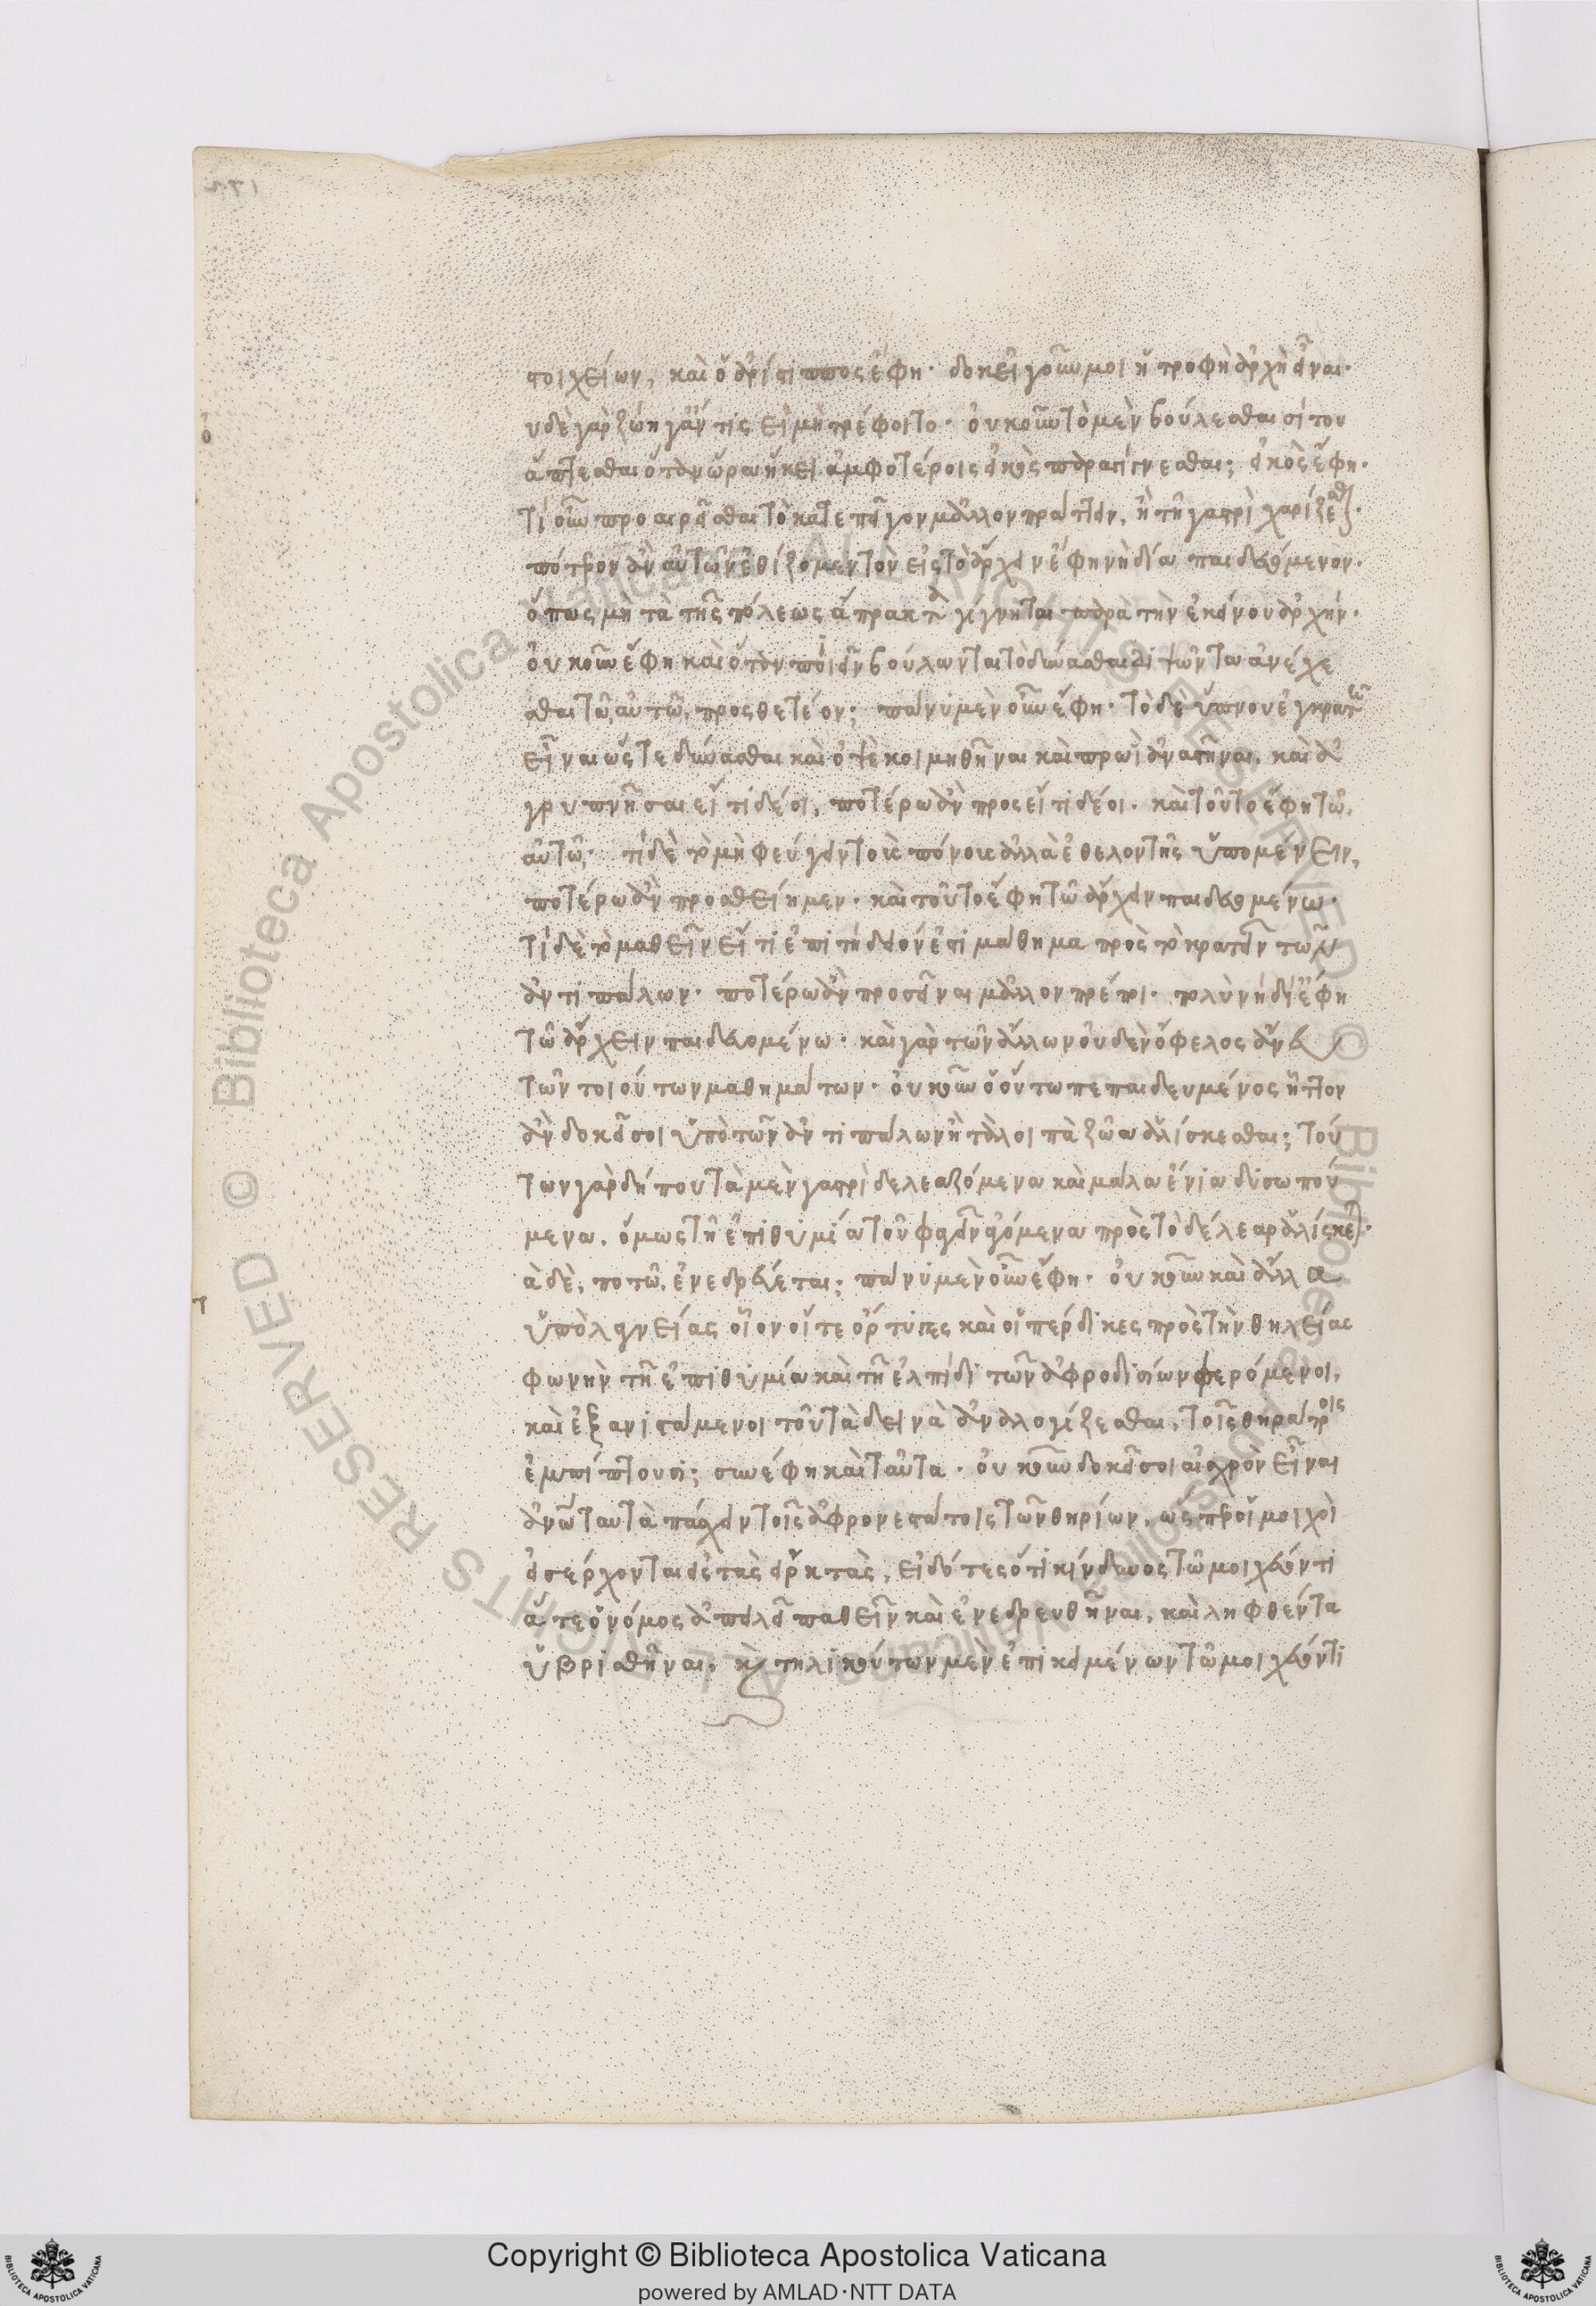 στοιχείων, καὶ ὁ ἀρίστιππος ἔφη· δοκεῖ γοῦν μοι ἡ τροφὴ ἀρχὴ εἶναι·
υδὲ γὰρ ζώη γ' ἄν τις εἰ μὴ τρέφοιτο· οὐκοῦν τὸ μὲν βούλεσθαι σίτου
ἅπτεσθαι ὅταν ὥρα ἥκει ἀμφοτέροις εἰκὸς παραγίγνεσθαι; εἰκὸς ἔφη·
τί οὖν προαιρεῖσθαι τὸ κατεπεῖγον μᾶλλον πράττειν, ἢ τῆ γαστρὶ χαρίζεσθαι·
πότερον ἂν αὐτῶν ἐθίζομεν τὸν εἰς τὸ ἄρχειν ἔφη νὴ δία παιδευόμενον·
ὅπως μὴ τὰ τῆς πόλεως ἄπρακτα γίγνηται παρὰ τὴν ἐκείνου ἀρχήν·
οὐκοῦν ἔφη καὶ ὅταν πιεῖν βούλωνται τὸ δύνασθαι διψῶντα ἀνέχε
σθαι τῶ αὐτῶ προσθετέον; πάνυ μὲν οὖν ἔφη· τὸ δὲ ὕπνου ἐγκρατῆ
εἶναι ὥστε δύνασθαι καὶ ὀψὲ κοιμηθῆναι καὶ πρωὶ ἀναστῆναι, καὶ ἀ
γρυπνῆσαι εἴ τι δέοι, ποτέρω ἂν προσεί τι δέοι· καὶ τοῦτο ἔφη τῶ
αὐτῶ· τί δὲ τὸ μὴ φεύγειν τοὺς πόνους ἀλλὰ ἐθελοντὴς ὑπομένειν,
ποτέρω ἂν προσθείημεν· καὶ τοῦτο ἔφη τῶ ἄρχειν παιδευομένω·
τί δὲ τὸ μαθεῖν εἴ τι ἐπιτήδειόν ἐστι μάθημα πρὸς τὸ κρατεῖν τῶν
ἀντιπάλων· ποτέρω ἂν προσεῖναι μᾶλλον πρέποι· πολὺ νὴ δί' ἔφη
τῶ ἄρχειν παιδευομένω· καὶ γὰρ τῶν ἄλλων οὐδὲν ὄφελος ἄνευ
τῶν τοιούτων μαθημάτων· οὐκοῦν ὁ οὕτω πεπαιδευμένος ἧττον
ἂν δοκεῖ σοι ὑπὸ τῶν ἀντιπάλων ἢ τὰ λοιπὰ ζῶα ἁλίσκεσθαι; τού
των γὰρ δήπου τὰ μὲν γαστρὶ δελεαζόμενα καὶ μάλα ἔνια δυσωπού
μενα, ὅμως τῆ ἐπιθυμία τοῦ φαγεῖν ἀγόμενα πρὸς τὸ δέλεαρ ἁλίσκεται·
ὰ δὲ, ποτῶ ἐνεδρεύεται; πάνυ μὲν οὖν ἔφη· οὐκοῦν καὶ ἄλλα
ὑπὸ λαγνείας οἷον οἵ τε ὄρτυγες καὶ οἱ πέρδικες πρὸς τὴν θηλείας
φωνὴν τῆ ἐπιθυμία καὶ τῆ ἐλπίδι τῶν ἀφροδισίων φερόμενοι,
καὶ ἐξανιστάμενοι τοῦ τὰ δεινὰ ἀναλογίζεσθαι, τοῖς θηράτροις
ἐμπίπτουσι; συνέφη καὶ ταῦτα· οὐκοῦν δοκεῖ σοι αἰσχρὸν εἶναι
ἀνθρώπω ταυτὰ πάσχειν τοῖς ἀφρονεστάτοις τῶν θηρίων, ὥσπερ οἱ μοιχοὶ
εἰσέρχονται εἰς τὰς εἱρκτὰς, εἰδότες ὅτι κίνδυνος τῶ μοιχεύοντι
ἅ τε ὁ νόμος ἀπειλεῖ παθεῖν καὶ ἐνεδρευθῆναι, καὶ ληφθέντα
ὑβρισθῆναι, καὶ τηλικούτων μὲν ἐπικειμένων τῶ μοιχεύοντι
Copyright © Biblioteca Apostolica Vaticana
powered by AMLAD·NTT DATA